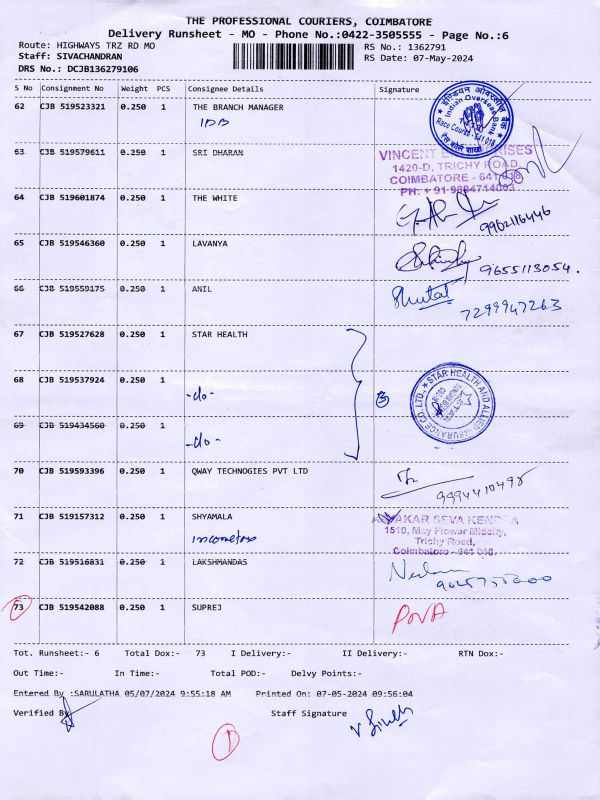 THE PROFESSIONAL COURIERS, COIMBATORE
Delivery Runsheet - MO - Phone No.:0422-3505555 - Page No.:6
Route: HIGHWAYS TRZ RD MO
RS No.: 1362791
Staff: SIVACHANDRAN
RS Date: 07-May-2024
DRS No.: DCJB136279106
S No Consignment No Weight PCS Consignee Details Signature
62 CJB 519523321 0.250 1 THE BRANCH MANAGER
IOB
इण्डियन ओवरसीज़ बैंक
Indian Overseas Bank
Race Course - 641 018
63 CJB 519579611 0.250 1 SRI DHARAN
VINCENT ENTERPRISES
1420-D, TRICHY ROAD
COIMBATORE - 641 018
PH: + 91-9894714003
64 CJB 519601874 0.250 1 THE WHITE
9902116446
65 CJB 519546360 0.250 1 LAVANYA
9655113054.
66 CJB 519559175 0.250 1 ANIL
7299947263
67 CJB 519527628 0.250 1 STAR HEALTH
68 CJB 519537924 0.250 1
-do-
3
STAR HEALTH AND ALLIED INSURANCE CO. LTD.,
69 CJB 519434560 0.250 1
-do-
70 CJB 519593396 0.250 1 QWAY TECHNOGIES PVT LTD
9994410498
71 CJB 519157312 0.250 1 SHYAMALA
SEVA KENDRA
1510, May Flower Midcity,
Trichy Road,
Coimbatore - 641 018.
72 CJB 519516831 0.250 1 LAKSHMANDAS
73 CJB 519542088 0.250 1 SUPREJ
PNA
Tot. Runsheet:- 6 Total Dox:- 73 I Delivery:- II Delivery:- RTN Dox:-
Out Time:- In Time:- Total POD:- Delvy Points:-
Entered By :SARULATHA 05/07/2024 9:55:18 AM Printed On: 07-05-2024 09:56:04
Verified By
Staff Signature
1